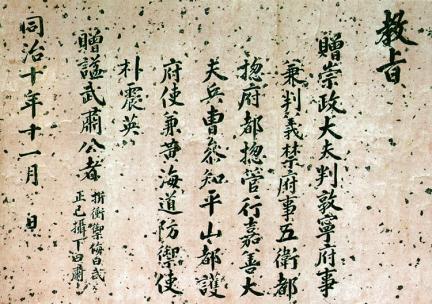 教旨
贈崇政大夫判敦寧府事
兼判義禁府事五衛都
摠府都摠管行嘉善大
夫兵曹參知平山都護
府使兼黃海道防禦使
朴震英
贈諡武肅公者 折衝禦侮曰武
正己攝下曰肅
同治十年十一月 日